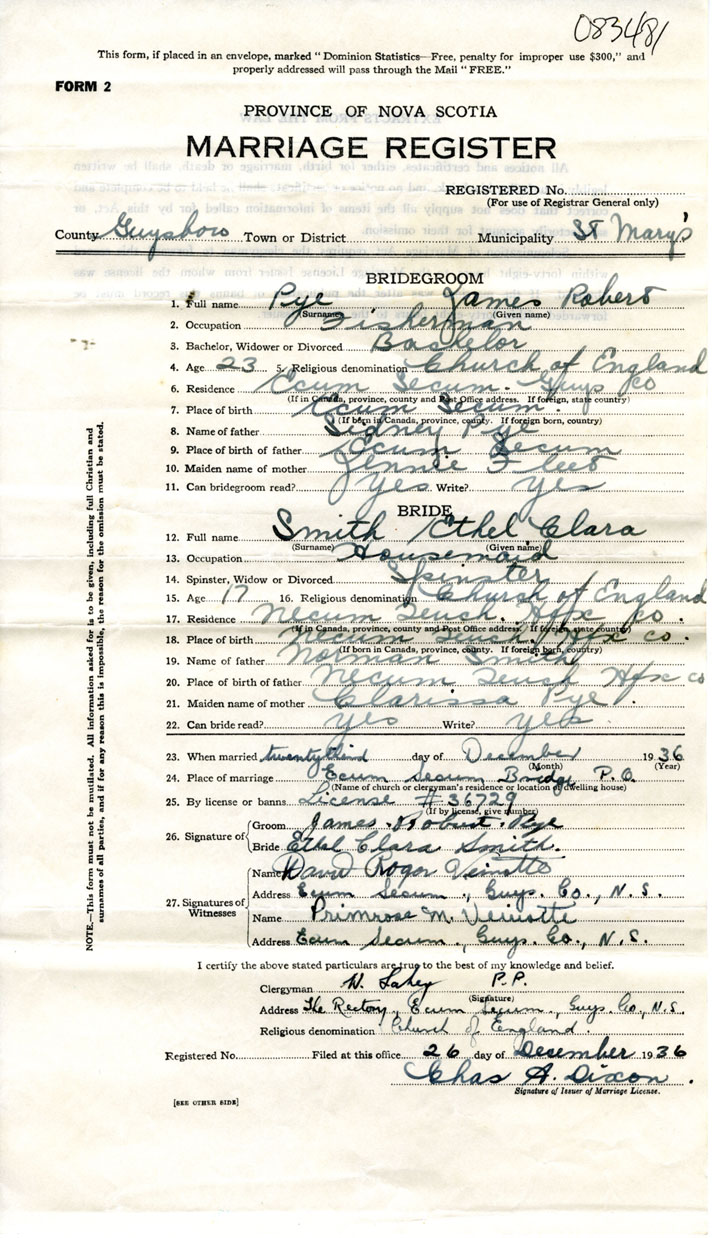 083481
This form, if placed in an envelope, marked "Dominion Statistics—Free, penalty for improper use $300," and
properly addressed will pass through the Mail "FREE."
FORM 2
PROVINCE OF NOVA SCOTIA
MARRIAGE REGISTER
REGISTERED No.
(For use of Registrar General only)
County Guysboro Town or District Municipality St Mary's
BRIDEGROOM
1. Full name Pye James Robert
(Surname) (Given name)
2. Occupation Fisherman
3. Bachelor, Widower or Divorced Bachelor
4. Age 23 5. Religious denomination Church of England
6. Residence Ecum Secum. Guys Co
(If in Canada, province, county and Post Office address. If foreign, state country)
7. Place of birth Ecum Secum.
(If born in Canada, province, county. If foreign born, country)
8. Name of father Sidney Pye
9. Place of birth of father Ecum Secum
10. Maiden name of mother Jennie Fleet
11. Can bridegroom read? yes Write? yes
BRIDE
12. Full name Smith Ethel Clara
(Surname) (Given name)
13. Occupation Housemaid
14. Spinster, Widow or Divorced Spinster
15. Age 17 16. Religious denomination Church of England
17. Residence Necum Teuch. Hfx Co.
(If in Canada, province, county and Post Office address. If foreign, state country)
18. Place of birth Necum Teuch. Hfx Co.
(If born in Canada, province, county. If foreign born, country)
19. Name of father Norman Smith
20. Place of birth of father Necum Teuch Hfx Co
21. Maiden name of mother Clarissa Pye.
22. Can bride read? yes Write? yes.
23. When married twentythird day of December 1936
(Month) (Year)
24. Place of marriage Ecum Secum Bridge P.O.
(Name of church or clergyman's residence or location of dwelling house)
25. By license or banns License #36729
(If by license, give number)
26. Signature of
Groom James Robert Pye
Bride Ethel Clara Smith.
27. Signatures of Witnesses
Name David Roger Veinotte
Address Ecum Secum., Guys. Co., N.S.
Name Primrose M. Veinotte
Address Ecum Secum., Guys. Co., N.S.
I certify the above stated particulars are true to the best of my knowledge and belief.
Clergyman W. P.P.
(Signature)
Address The Rectory, Ecum Secum., Guys. Co., N.S.
Religious denomination Church of England.
Registered No. Filed at this office 26 day of December 1936
Chas A. Dixon.
Signature of Issuer of Marriage License.
[SEE OTHER SIDE]
NOTE.—This form must not be mutilated. All information asked for is to be given, including full Christian and
surnames of all parties, and if for any reason this is impossible, the reason for the omission must be stated.